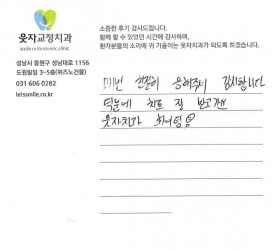 웃자교정치과
smile orthodontic clinic
성남시 중원구 성남대로 1156
도원빌딩 3~5층(위즈노건물)
031 606 0282
letssmile.co.kr
소중한 후기 감사드립니다.
함께 할 수 있었던 시간에 감사하며,
환자분들의 소리에 귀 기울이는 웃자치과가 되도록 하겠습니다.
매번 친절히 응해주셔서 감사합니다
덕분에 치료 잘 받고가요
웃자치과 화이팅